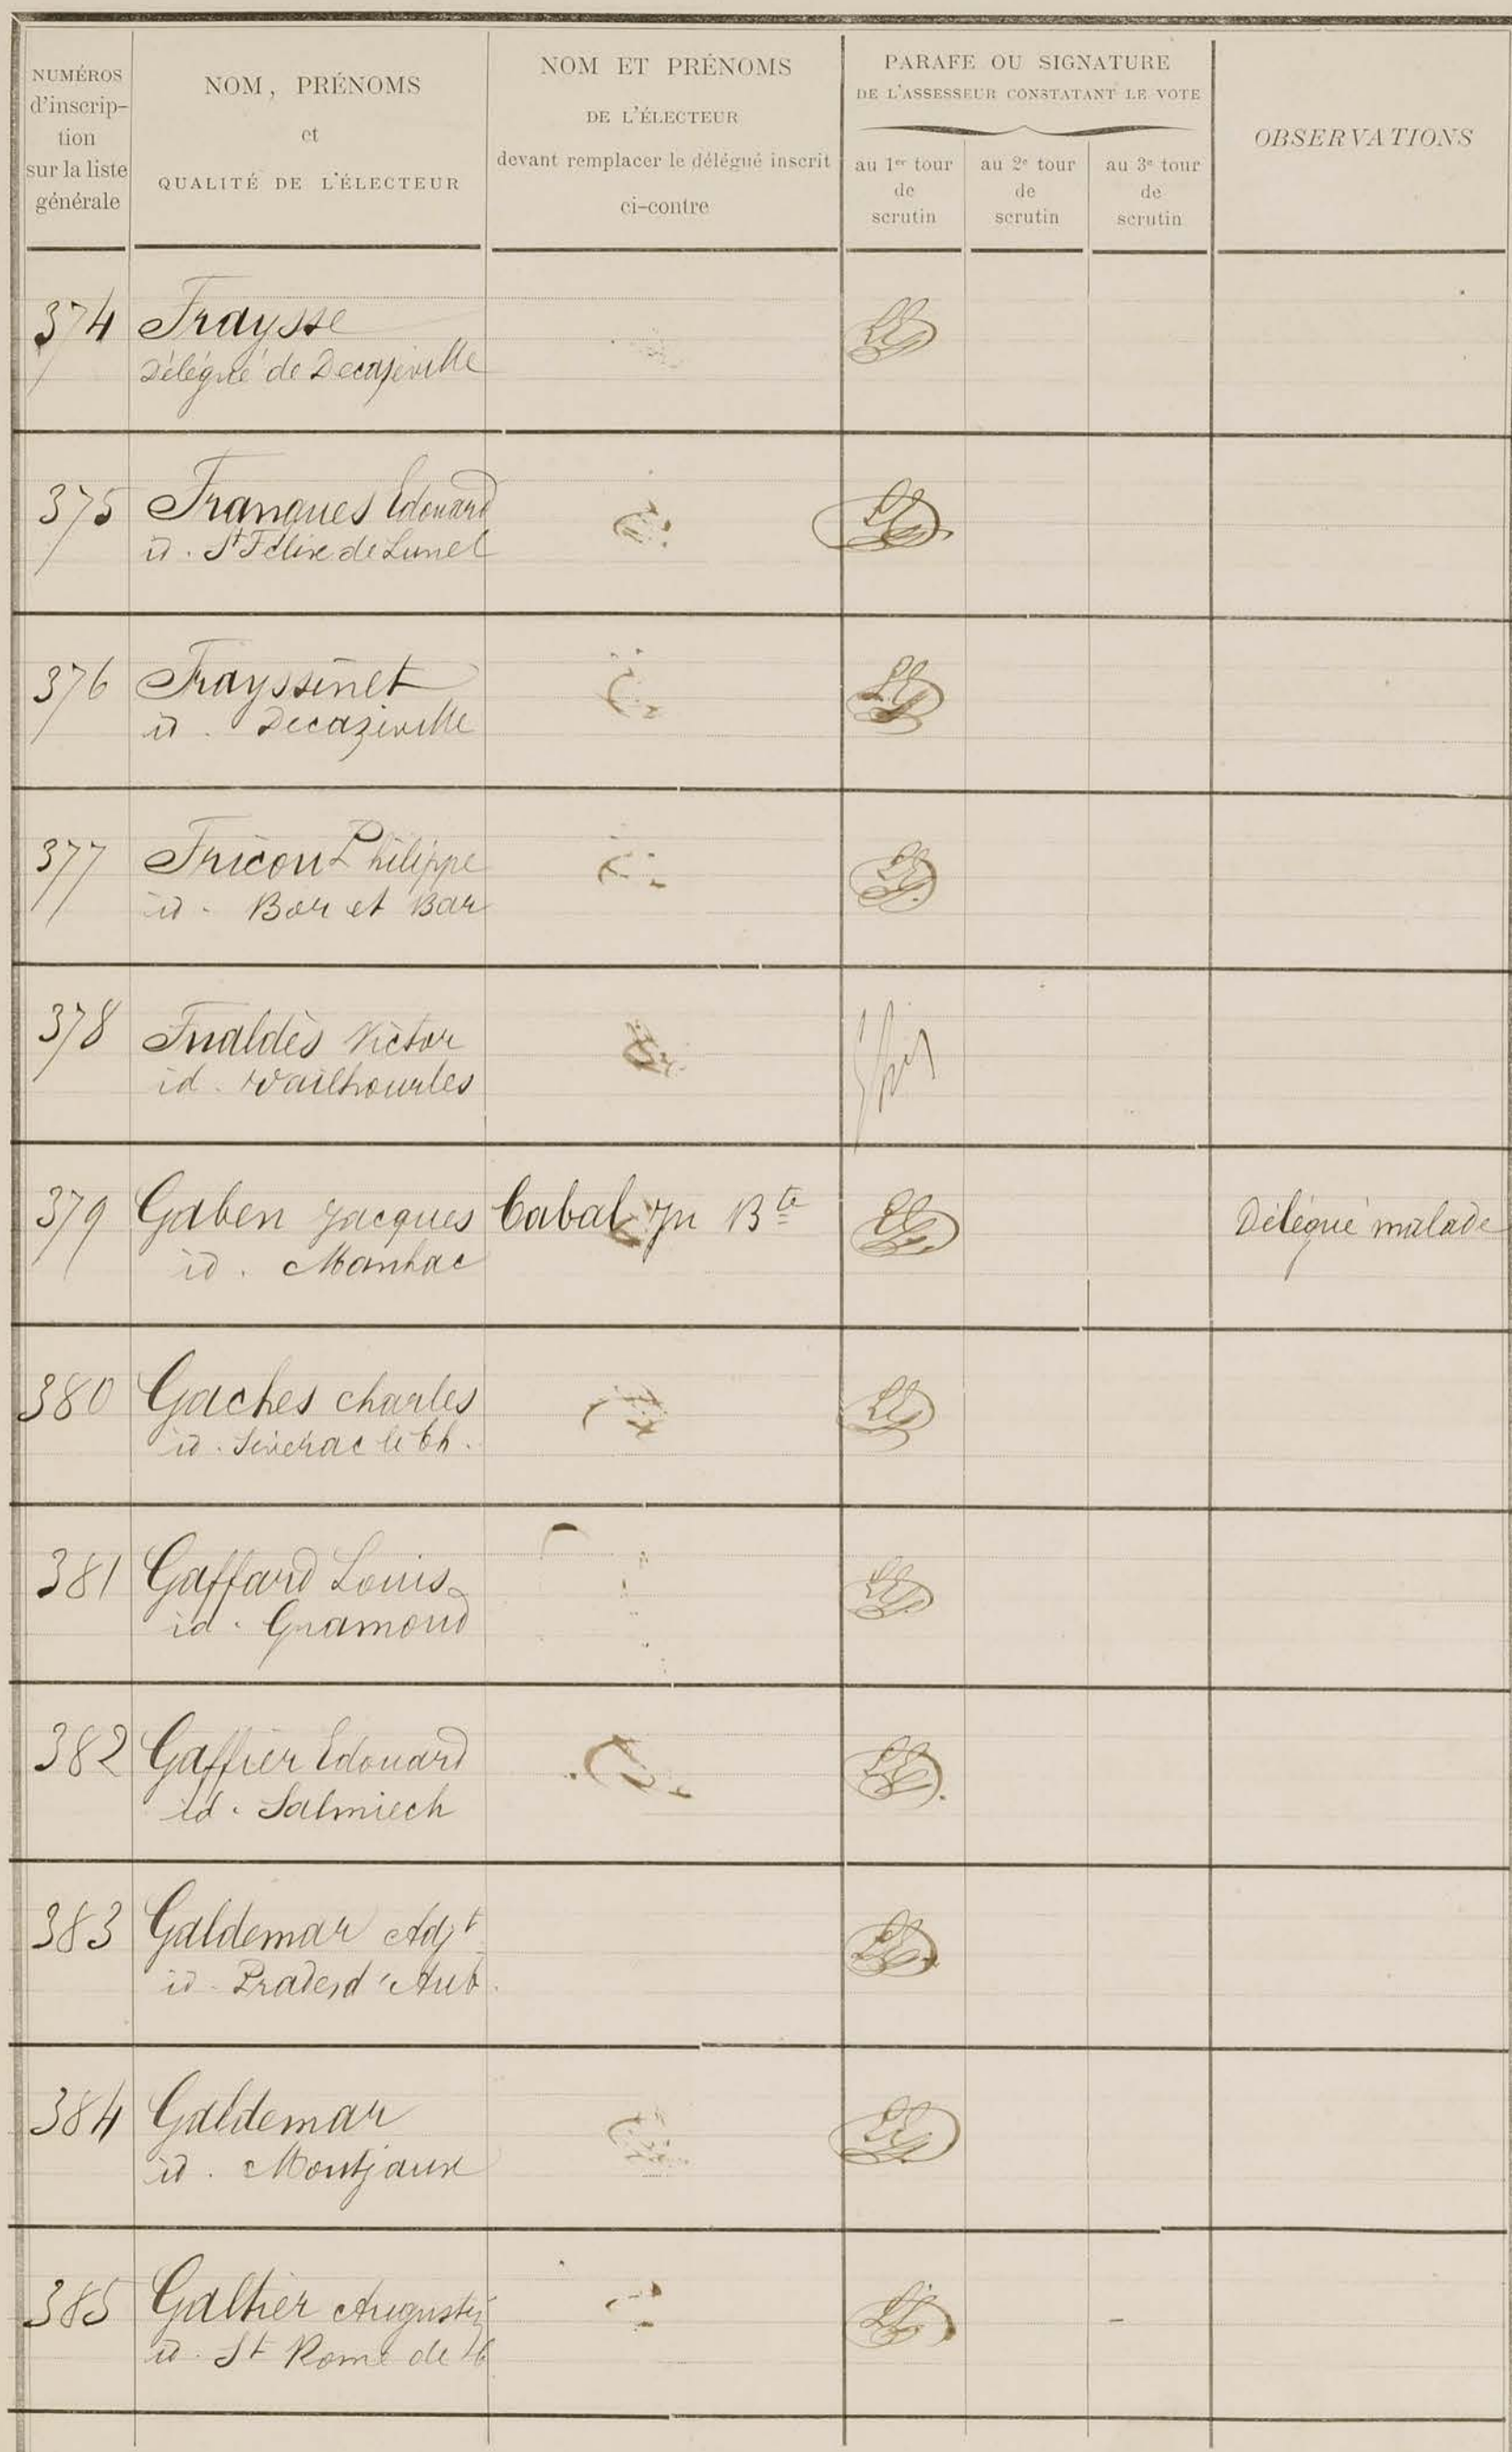 NUMÉROS
d'inscrip-
tion
sur la liste
générale
NOM, PRÉNOMS
et
QUALITÉ DE L'ÉLECTEUR
NOM ET PRÉNOMS
DE L'ÉLECTEUR
devant remplacer le délégué inscrit
ci-contre
PARAFE OU SIGNATURE
DE L'ASSESSEUR CONSTATANT LE VOTE
au 1er tour
de
scrutin
au 2e tour
de
scrutin
au 3e tour
de
scrutin
OBSERVATIONS
374 Fraysse
Délégué de Decazeville
375 Franques Edouard
id. St Félix de Lunel
376 Frayssinet
id. Decazeville
377 Fricou Philippe
id. Bor et Bar
378 Fualdès Victor
id. Vailhourles
379 Gaben Jacques Cabal Jn Bte Délégué malade
id. Manhac
380 Gaches Charles
id. Séverac le Ch.
381 Gaffard Louis
id. Gramond
382 Gaffier Edouard
id. Salmiech
383 Galdemar Adjt
id. Prades d'Aub.
384 Galdemar
id. Montjaux
385 Galtier Augustin
id. St Rome de